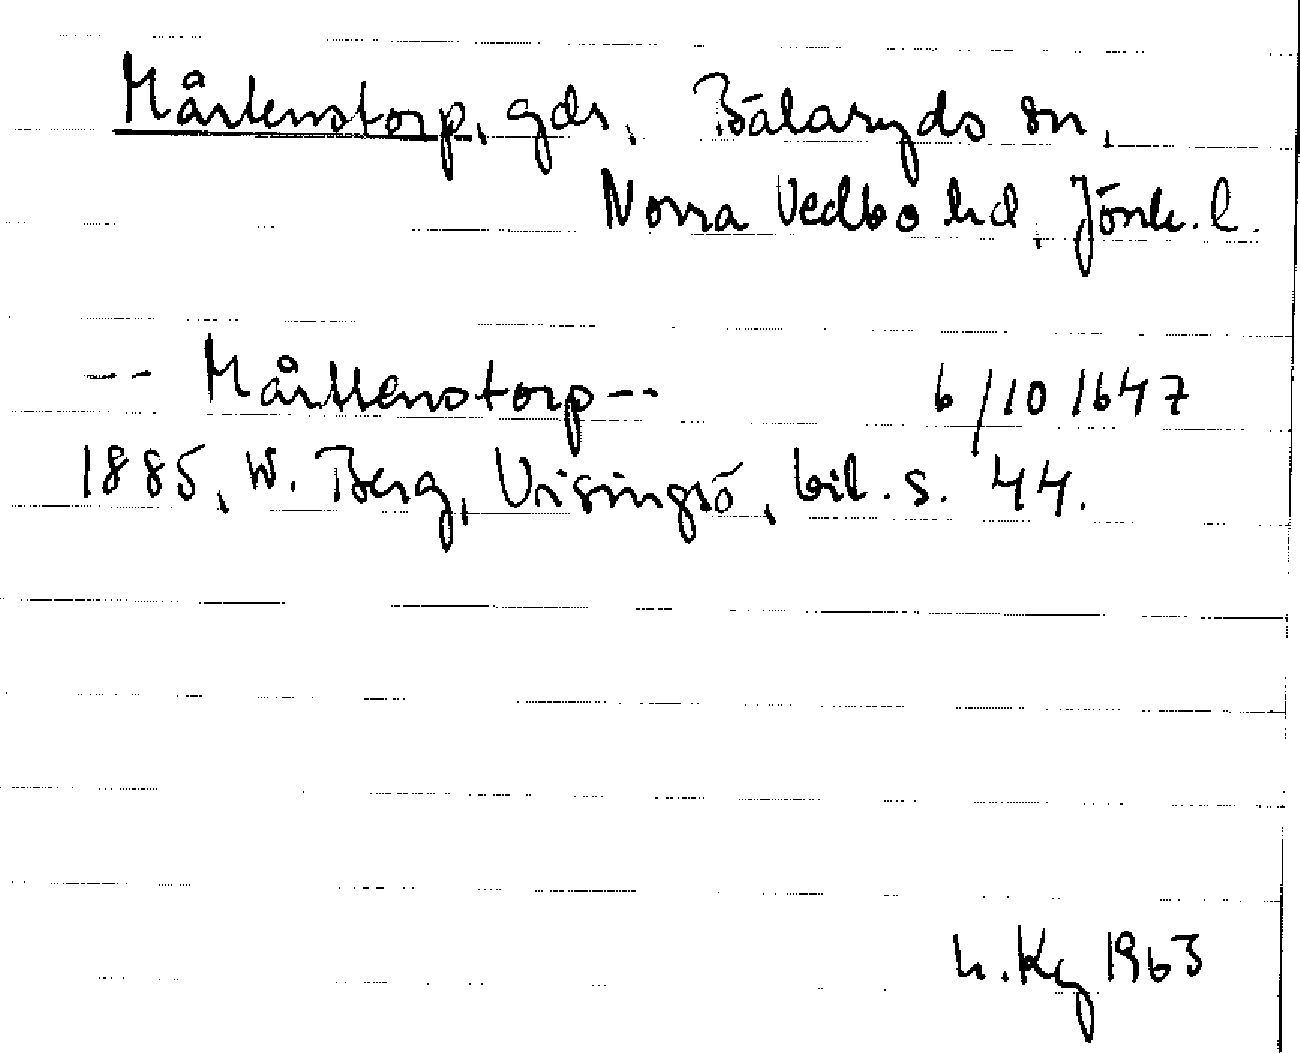 Mårtenstorp, gdr, Bälaryds sn,
Norra Vedbo hd, Jönk. l.
-- Mårttenstorp -- 6/10 1647
1885, W. Berg, Visingsö, bil. s. 44.
h. Kg 1963